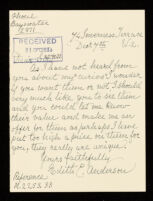 Phone
Bayswater
74 Inverness Terrace
RECEIVED
Dec 7th W.2.
As I have not heard from
you about my curios I wonder
if you want them or not. I should
very much like you to see them
and you could let me know
their value and make me an
offer for them as perhaps I have
put too high a price on them for
you, they really are unique.
Yours faithfully
Edith E. Anderson.
Reference